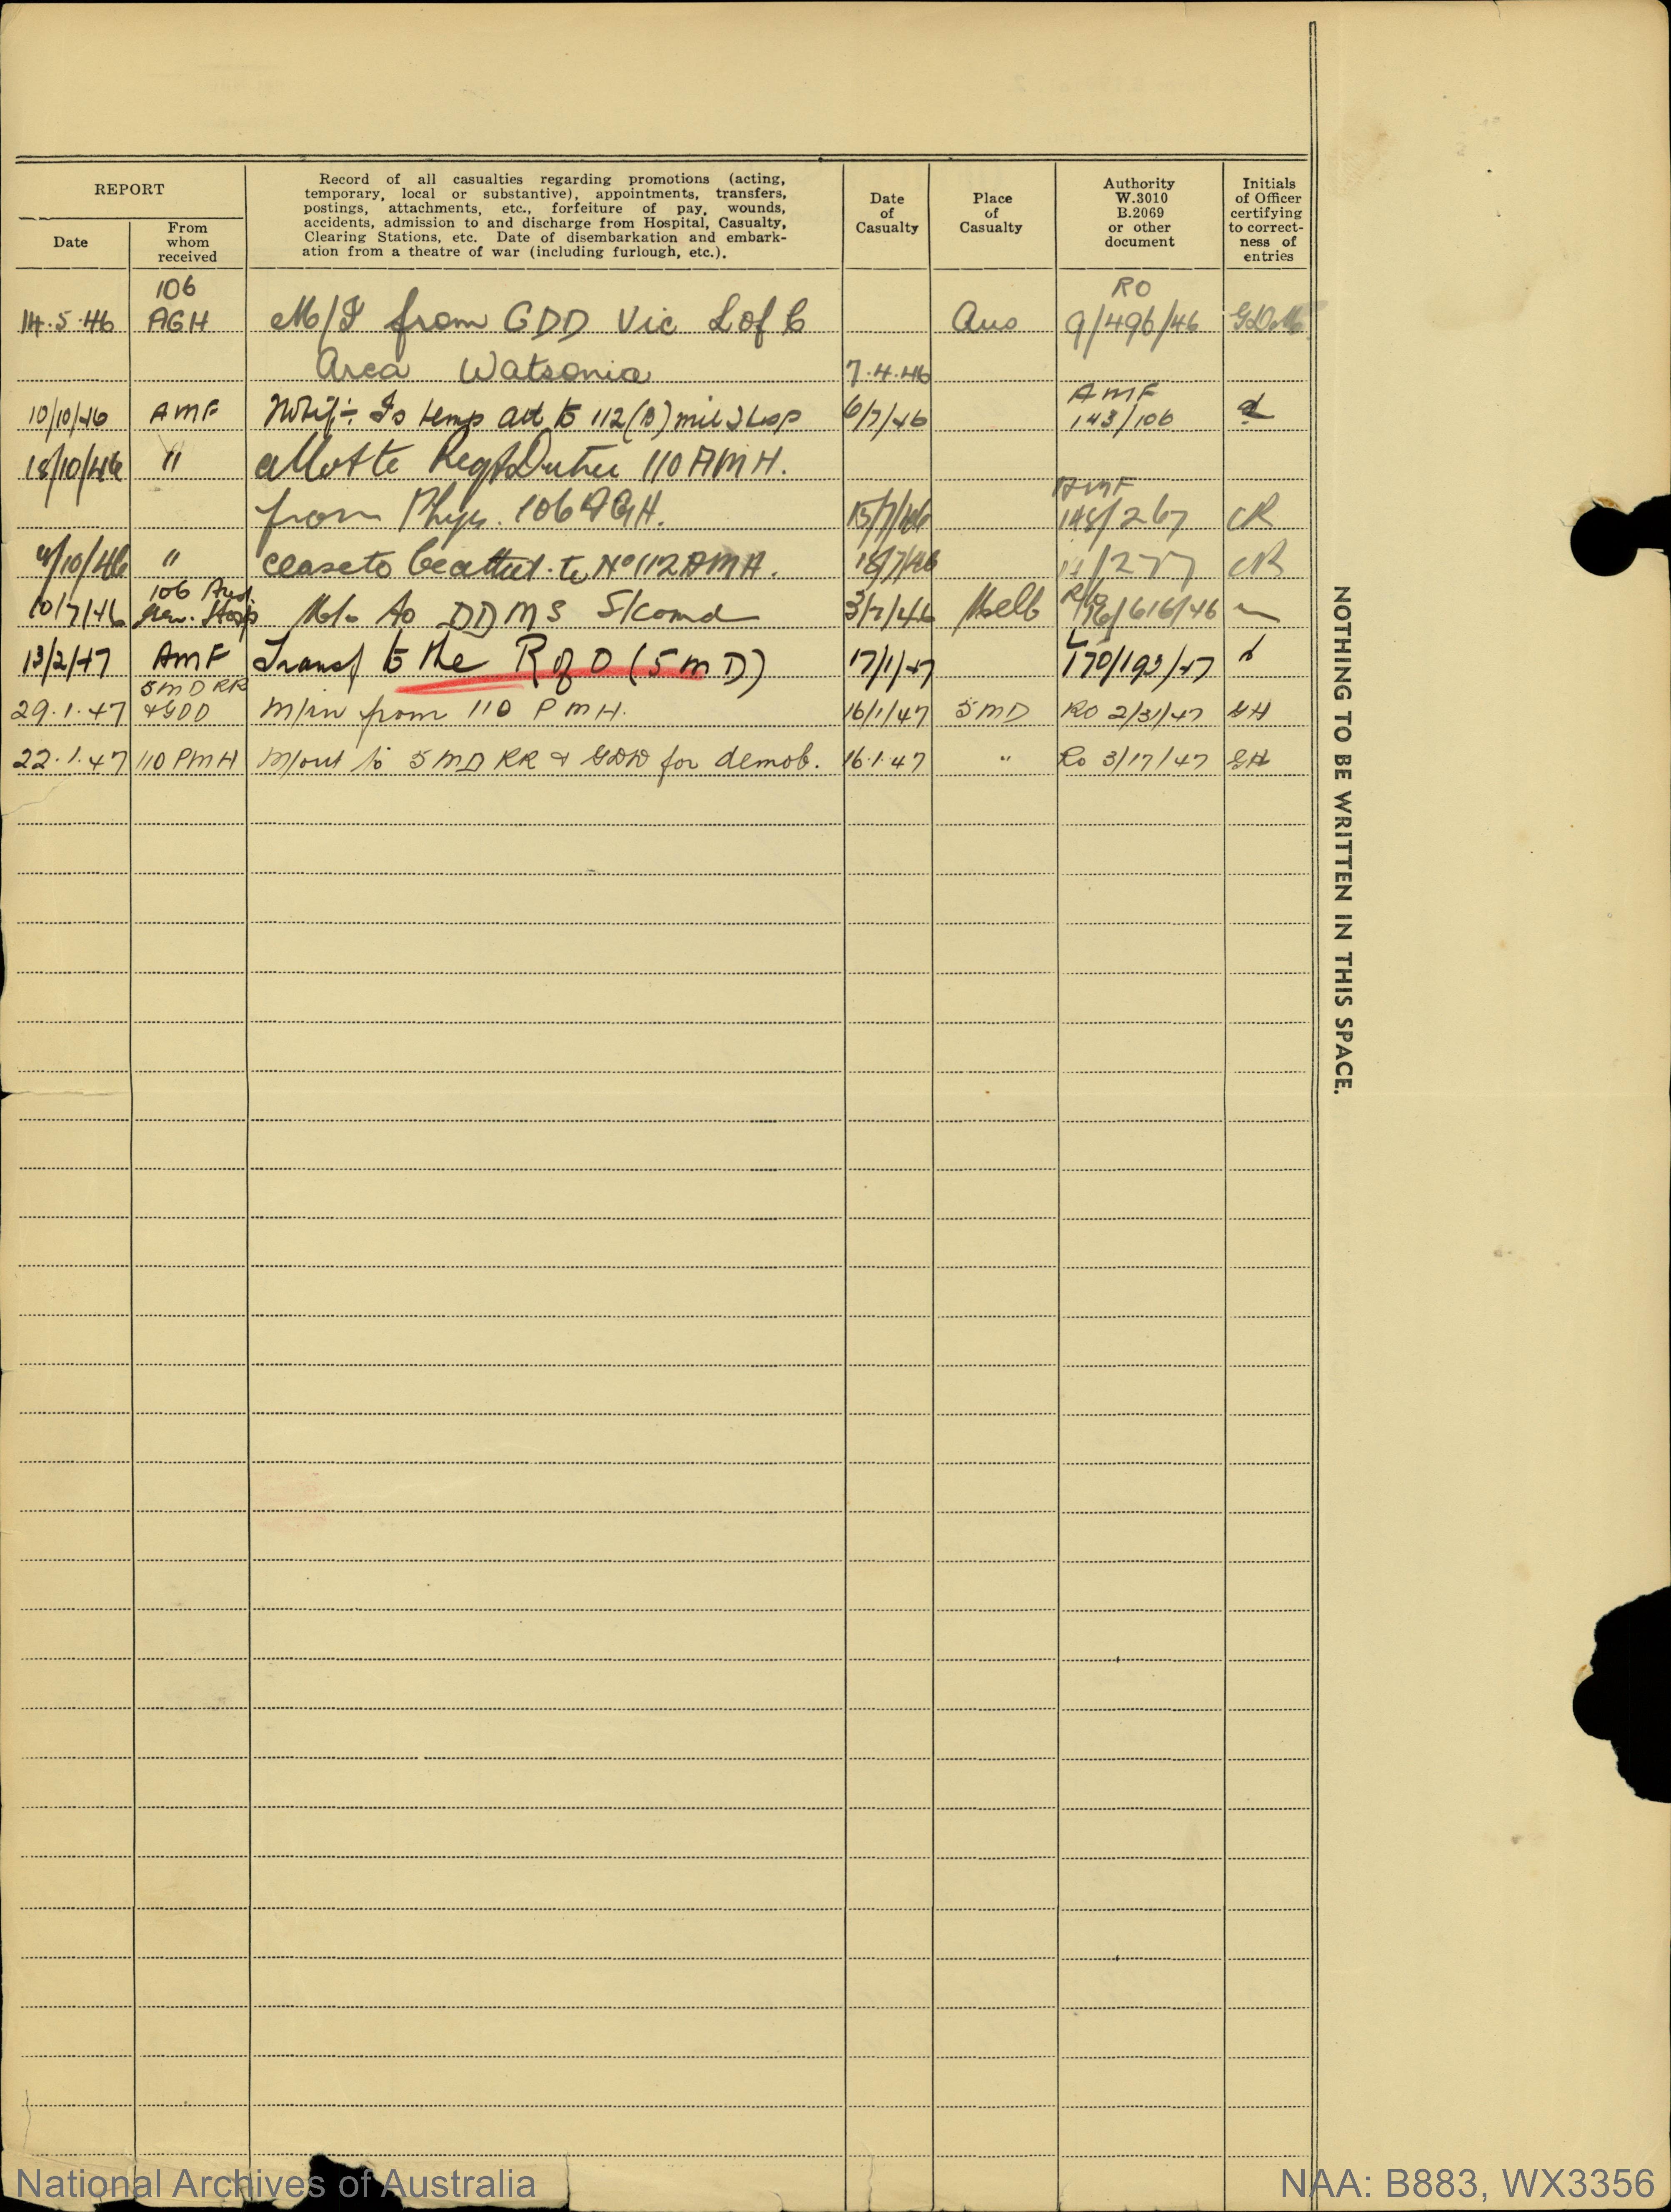 REPORT
Date
From
whom
received
Record of all casualties regarding promotions (acting,
temporary, local or substantive), appointments, transfers,
postings, attachments, etc., forfeiture of pay, wounds,
accidents, admission to and discharge from Hospital, Casualty,
Clearing Stations, etc. Date of disembarkation and embark-
ation from a theatre of war (including furlough, etc.).
Date
of
Casualty
Place
of
Casualty
Authority
W.3010
B.2069
or other
document
Initials
of Officer
certifying
to correct-
ness of
entries
106 RO
14.5.46 AGH M/I from GDD Vic L of C Aus 9/496/46
Area Watsonia 7.4.46
AMF
10/10/46 AMF Is temp att to 112 (B) mil Hosp 6/7/46 143/106
18/10/46 " Regt Duties 110 AMH.
AMF
from Phys. 106 AGH. 15/7/46 148/267 CR
/10/46 " cease to be atted. to No 112 AMH. 18/7/46 /277 CR
106 Aust.
10/7/46 Gen. Hosp M/o to DDMS S/Comd 3/7/46 Melb /616/46
13/2/47 AMF Transf to the R of O (5 MD) 17/1/47 170/193/47
5 MD RR
29.1.47 & GDD M/in from 110 PMH. 16/1/47 5 MD RO 2/31/47 GH
22.1.47 110 PMH M/out to 5 MD RR & GDD for demob. 16.1.47 " Ro 3/17/47 GH
NOTHING TO BE WRITTEN IN THIS SPACE.
National Archives of Australia
NAA: B883, WX3356